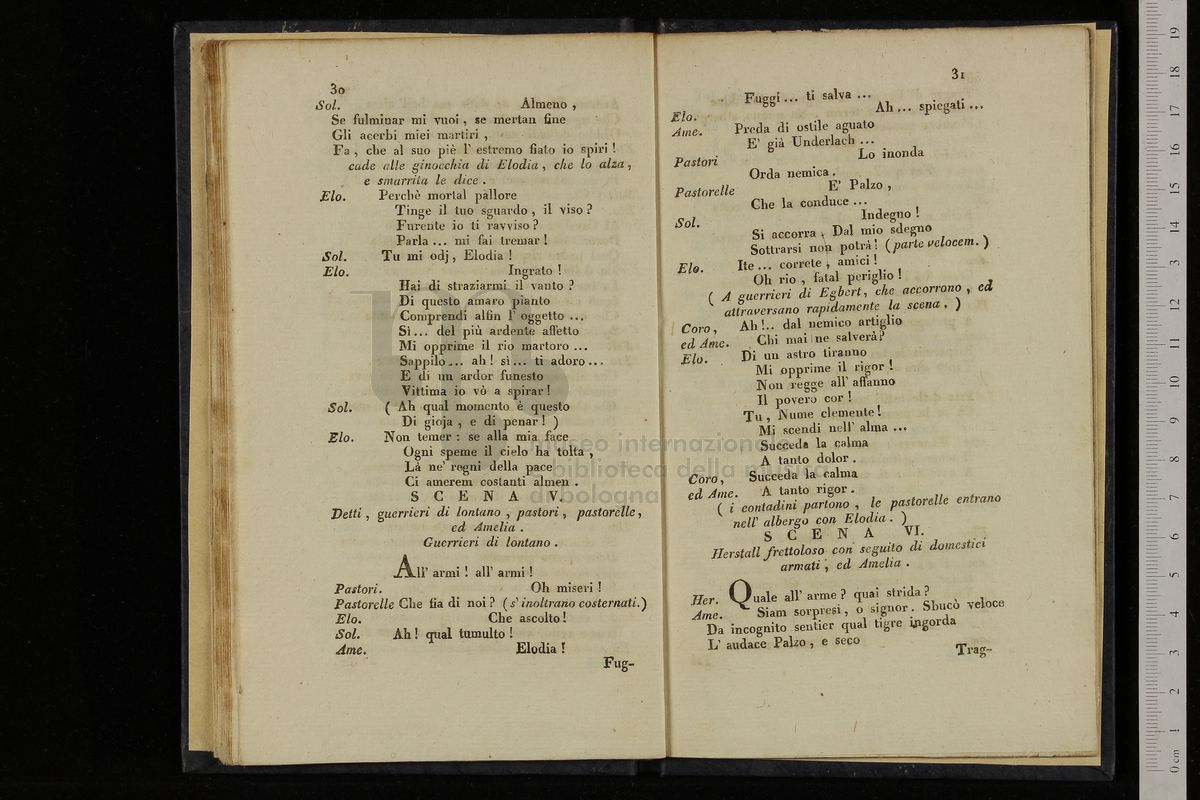 30
Sol. Almeno ,
Se fulminar mi vuoi , se mertan fine
Gli acerbi miei martiri ,
Fa , che al suo piè l' estremo fiato io spiri !
cade alle ginocchia di Elodia , che lo alza ,
e smarrita le dice .
Elo. Perchè mortal pallore
Tinge il tuo sguardo , il viso ?
Furente io ti ravviso ?
Parla ... mi fai tremar !
Sol. Tu mi odj , Elodia !
Elo. Ingrato !
Hai di straziarmi il vanto ?
Di questo amaro pianto
Comprendi alfin l' oggetto ...
Sì ... del più ardente affetto
Mi opprime il rio martoro ...
Sappilo ... ah ! sì ... ti adoro ...
E di un ardor funesto
Vittima io vò a spirar !
Sol. ( Ah qual momento è questo
Di gioja , e di penar ! )
Elo. Non temer : se alla mia face
Ogni speme il cielo ha tolta ,
Là ne' regni della pace
Ci amerem costanti almen .
SCENA V.
Detti , guerrieri di lontano , pastori , pastorelle ,
ed Amelia .
Guerrieri di lontano .
All' armi ! all' armi !
Pastori. Oh miseri !
Pastorelle Che fia di noi ? ( s' inoltrano costernati. )
Elo. Che ascolto !
Sol. Ah ! qual tumulto !
Ame. Elodia !
Fug-
31
Fuggi ... ti salva ...
Elo. Ah ... spiegati ...
Ame. Preda di ostile aguato
E' già Underlach ...
Pastori Lo inonda
Orda nemica .
Pastorelle E' Palzo ,
Che la conduce ...
Sol. Indegno !
Si accorra . Dal mio sdegno
Sottrarsi non potrà ! ( parte velocem. )
Elo. Ite ... correte , amici !
Oh rio , fatal periglio !
( A guerrieri di Egbert, che accorrono , ed
attraversano rapidamente la scena . )
Coro , Ah !.. dal nemico artiglio
ed Ame. Chi mai ne salverà ?
Elo. Di un astro tiranno
Mi opprime il rigor !
Non regge all' affanno
Il povero cor !
Tu , Nume clemente !
Mi scendi nell' alma ...
Succeda la calma
A tanto dolor .
Coro , Succeda la calma
ed Ame. A tanto rigor .
( i contadini partono , le pastorelle entrano
nell' albergo con Elodia . )
SCENA VI.
Herstall frettoloso con seguito di domestici
armati , ed Amelia .
Her. Quale all' arme ? quai strida ?
Ame. Siam sorpresi , o signor . Sbucò veloce
Da incognito sentier qual tigre ingorda
L' audace Palzo , e seco
Trag-
museo internazionale
biblioteca della musica
di bologna
0 cm 1 2 3 4 5 6 7 8 9 10 11 12 13 14 15 16 17 18 19